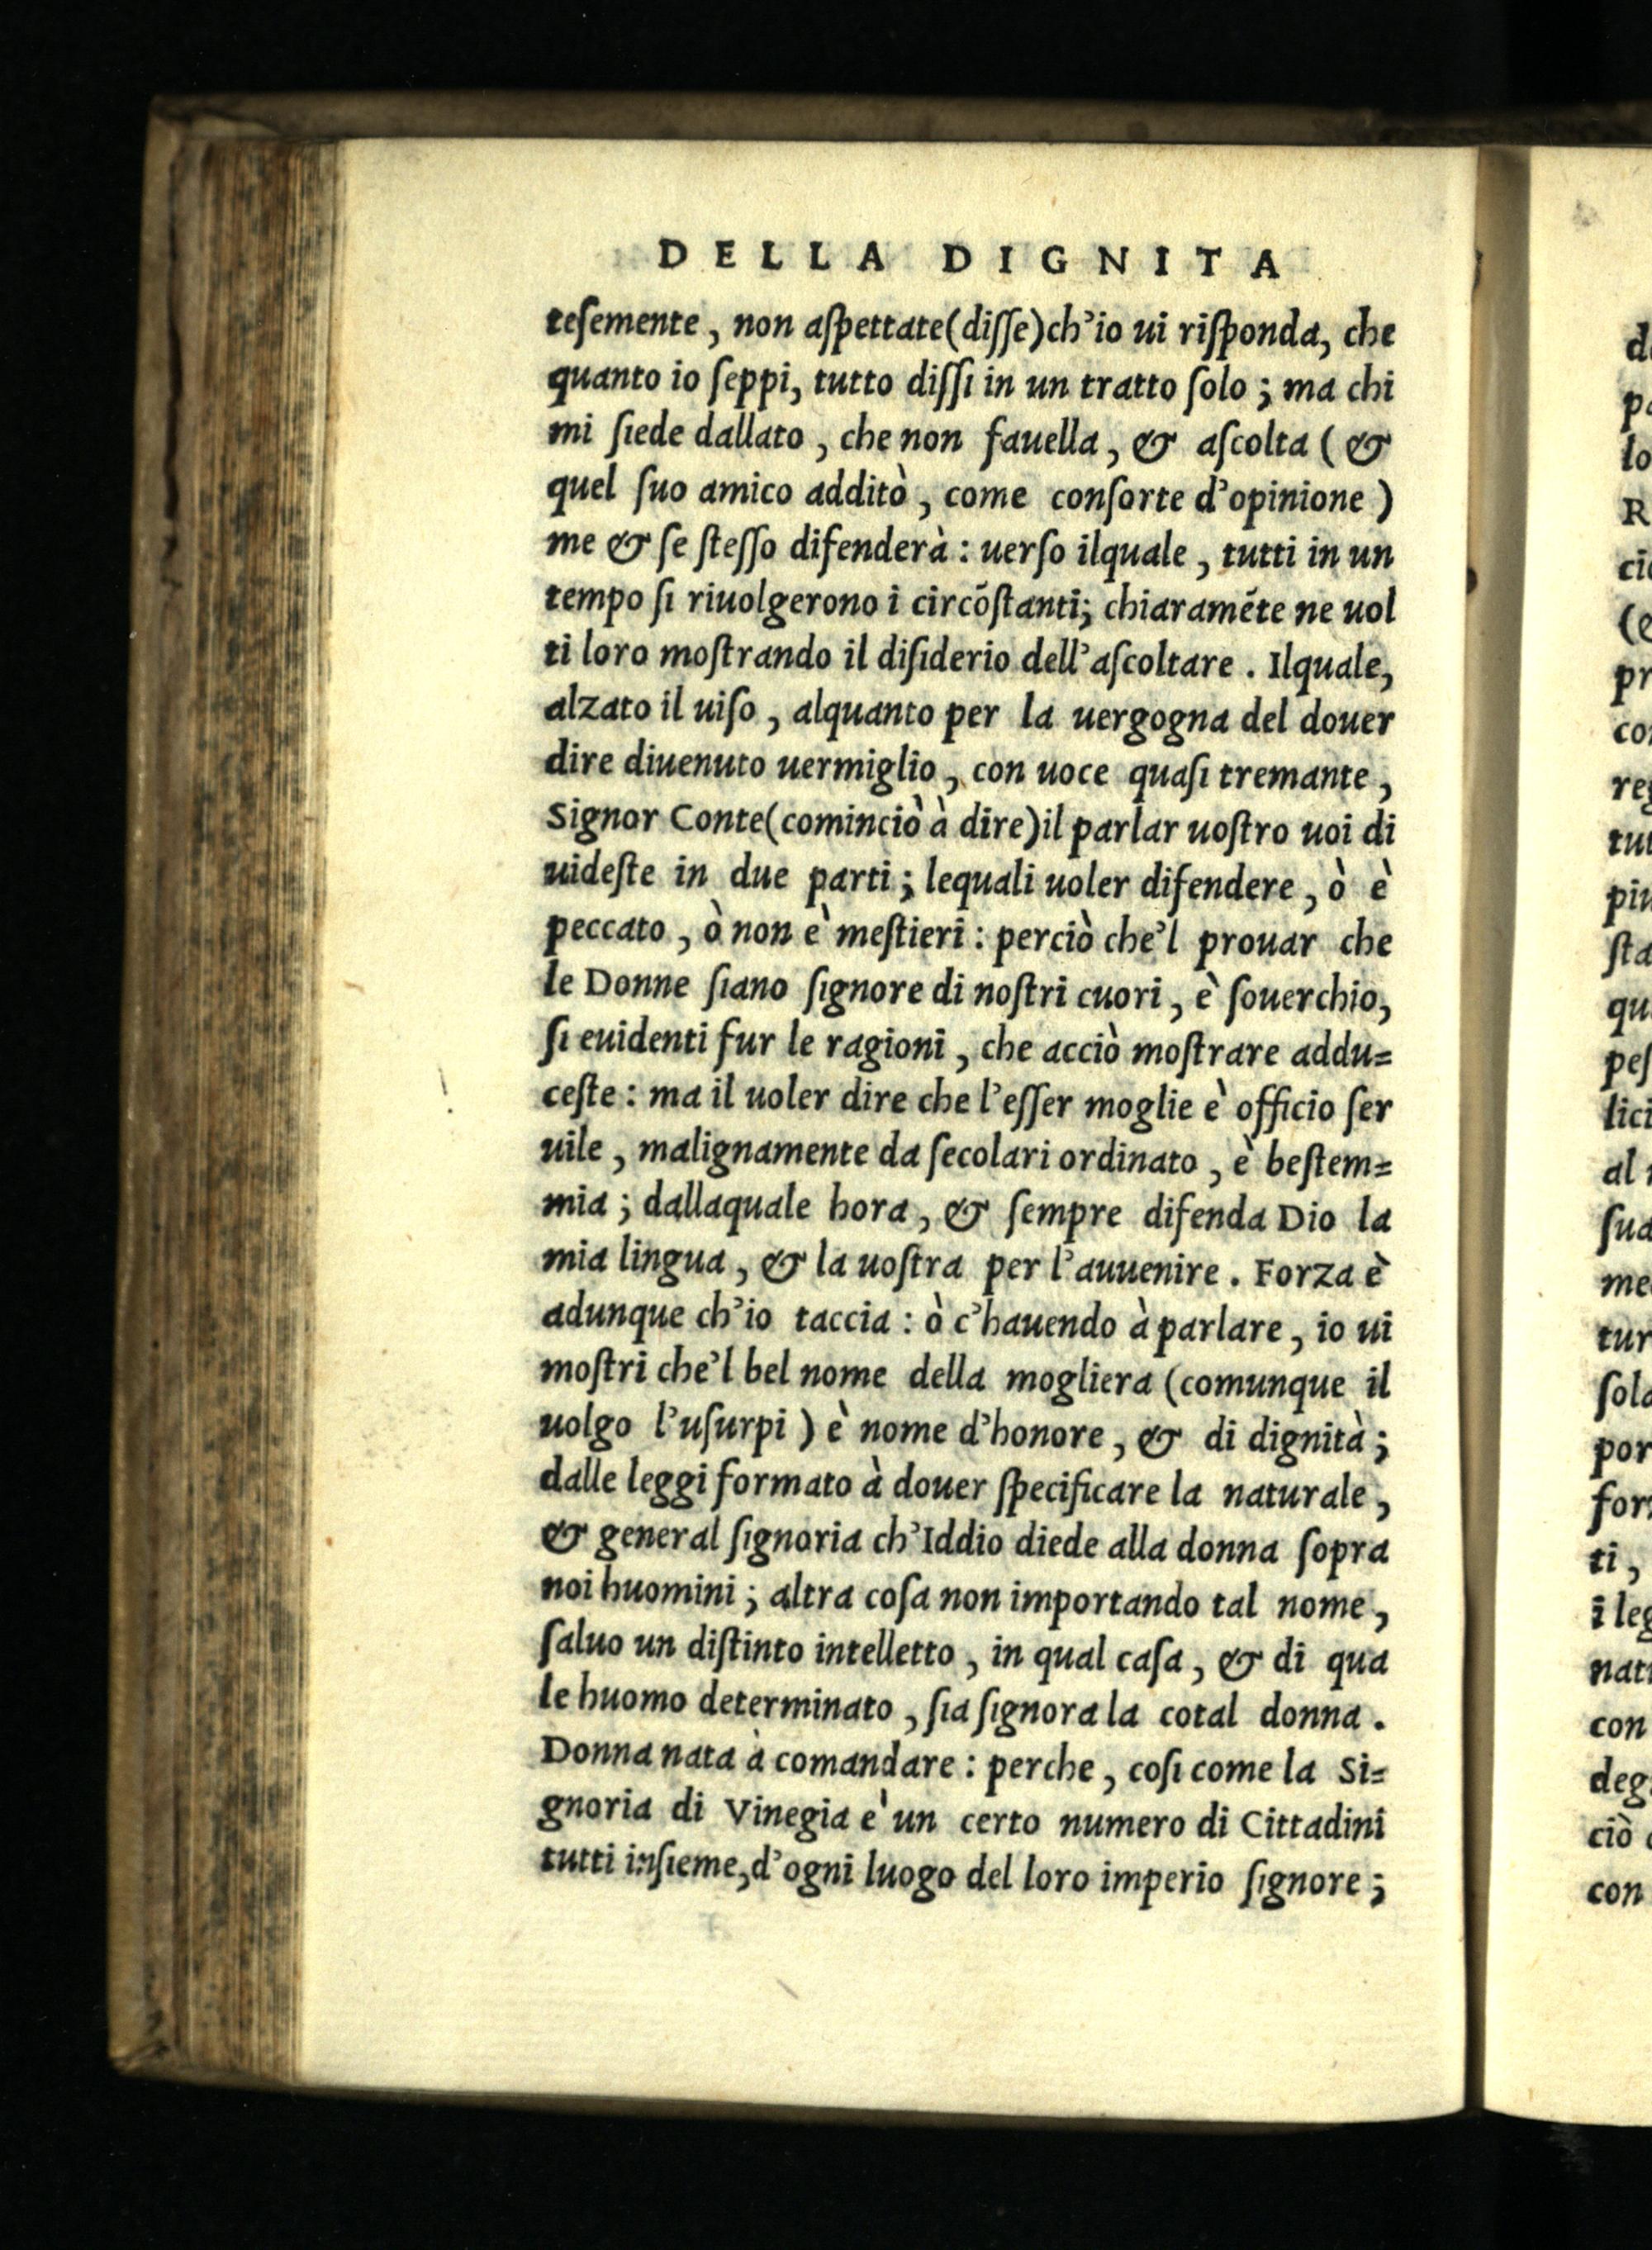 DELLA DIGNITA
teſemente, non aſpettate(diſſe)ch'io ui riſponda, che
quanto io ſeppi, tutto diſſi in un tratto ſolo; ma chi
mi ſiede dallato, che non fauella, & aſcolta (&
quel ſuo amico additò, come conſorte d'opinione)
me & ſe ſteſſo difenderà: uerſo ilquale, tutti in un
tempo ſi riuolgerono i circõſtanti; chiaramẽte ne uol
ti loro moſtrando il diſiderio dell'aſcoltare. Ilquale,
alzato il uiſo, alquanto per la uergogna del douer
dire diuenuto uermiglio, con uoce quaſi tremante,
Signor Conte(cominciò à dire)il parlar uoſtro uoi di
uideſte in due parti; lequali uoler difendere, ò è
peccato, ò non è meſtieri: perciò che'l prouar che
le Donne ſiano ſignore di noſtri cuori, è ſouerchio,
ſi euidenti fur le ragioni, che acciò moſtrare addu=
ceſte: ma il uoler dire che l'eſſer moglie è officio ſer
uile, malignamente da ſecolari ordinato, è beſtem=
mia; dallaquale hora, & ſempre difenda Dio la
mia lingua, & la uoſtra per l'auuenire. Forza è
adunque ch'io taccia: ò c'hauendo à parlare, io ui
moſtri che'l bel nome della mogliera (comunque il
uolgo l'uſurpi) è nome d'honore, & di dignità;
dalle leggi formato à douer ſpecificare la naturale,
& general ſignoria ch'Iddio diede alla donna ſopra
noi huomini; altra coſa non importando tal nome,
ſaluo un diſtinto intelletto, in qual caſa, & di qua
le huomo determinato, ſia ſignora la cotal donna.
Donna nata à comandare: perche, coſi come la Si=
gnoria di Vinegia è un certo numero di Cittadini
tutti inſieme,d'ogni luogo del loro imperio ſignore;